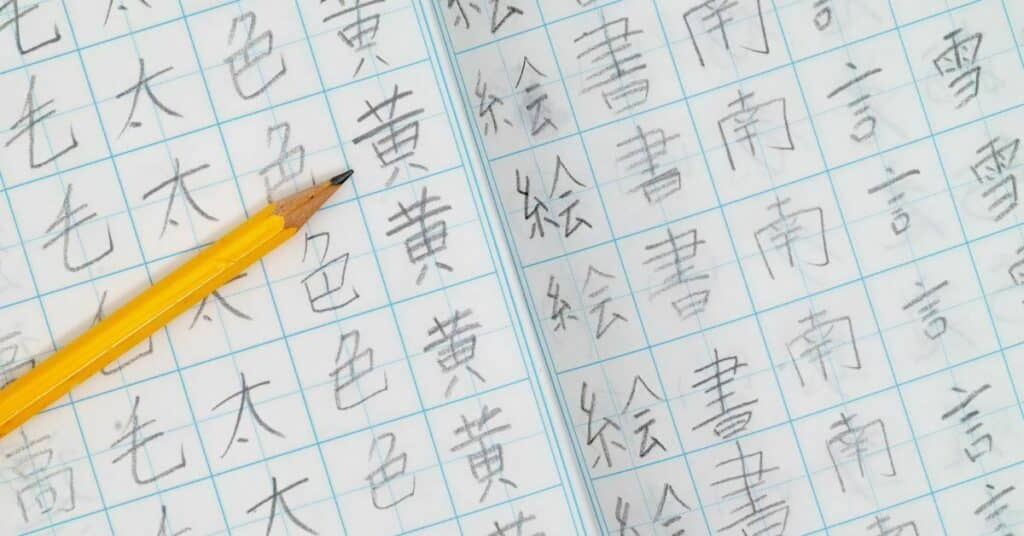 雪雪
言言言言言
南南南南南
書書書書書
絵絵絵絵絵絵
黄黄黄黄黄
色色色色色
太太太太太
毛毛毛毛
高